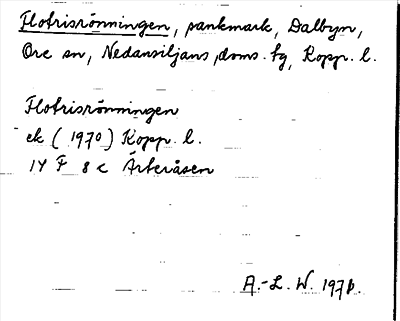 Flotrisrönningen, sankmark, Dalbyn,
Ore sn, Nedansiljans doms. tg, Kopp. l.
Flotrisrönningen
ek (1970) Kopp. l.
14 F 8 c Ärteråsen
A.-L. W.